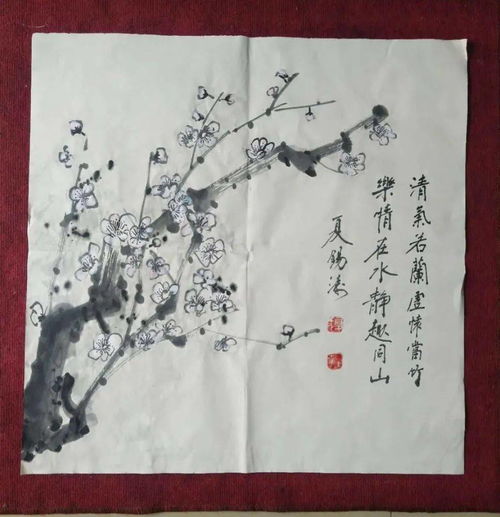 清氣若蘭虛懷當竹
樂情在水靜趣同山
夏锡